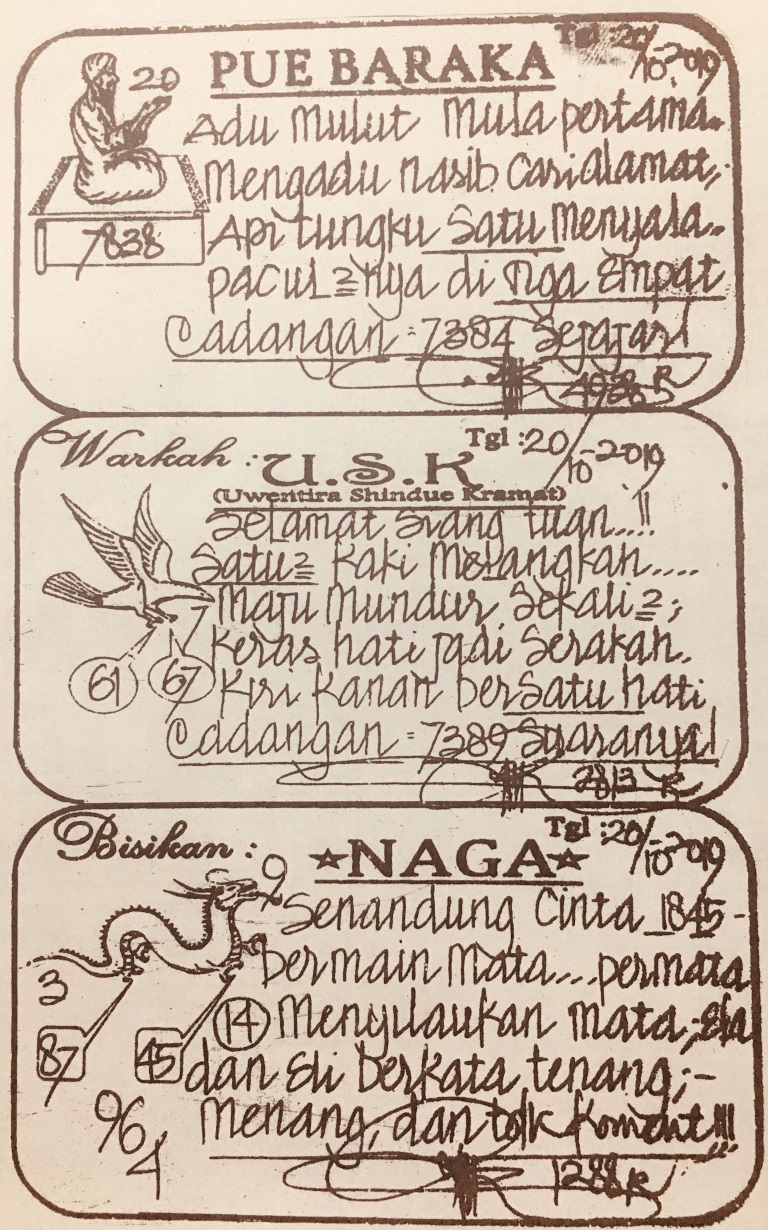 Tgl : 20/10-2019
PUE BARAKA
20
Adu Mulut Mula pertama..
Mengadu nasib Cari alamat,.
7838
Api tungku Satu Menyala..
pacul2nya di Tiga Empat
Cadangan = 7384 Sejajar!
4928 R
Warkah :
Tgl : 20/10-2019
U.S.K
(Uwentira Shindue Kramat)
Selamat Siang tuan....!!
Satu2 Kaki Melangkah....
Maju Mundur Sekali2;
Keras hati jadi Serakah.
61
67
Kiri Kanan berSatu hati
Cadangan = 7389 Suaranya!
2813 R
Bisikan :
Tgl : 20/10-2019
☆NAGA☆
9
Senandung Cinta 1845-
bermain Mata... permata
3
14 Menyilaukan Mata,; Ela
87
45
dan Eli berkata tenang;-
96
4
Menang, dan tdk Koment!!!
1288 R